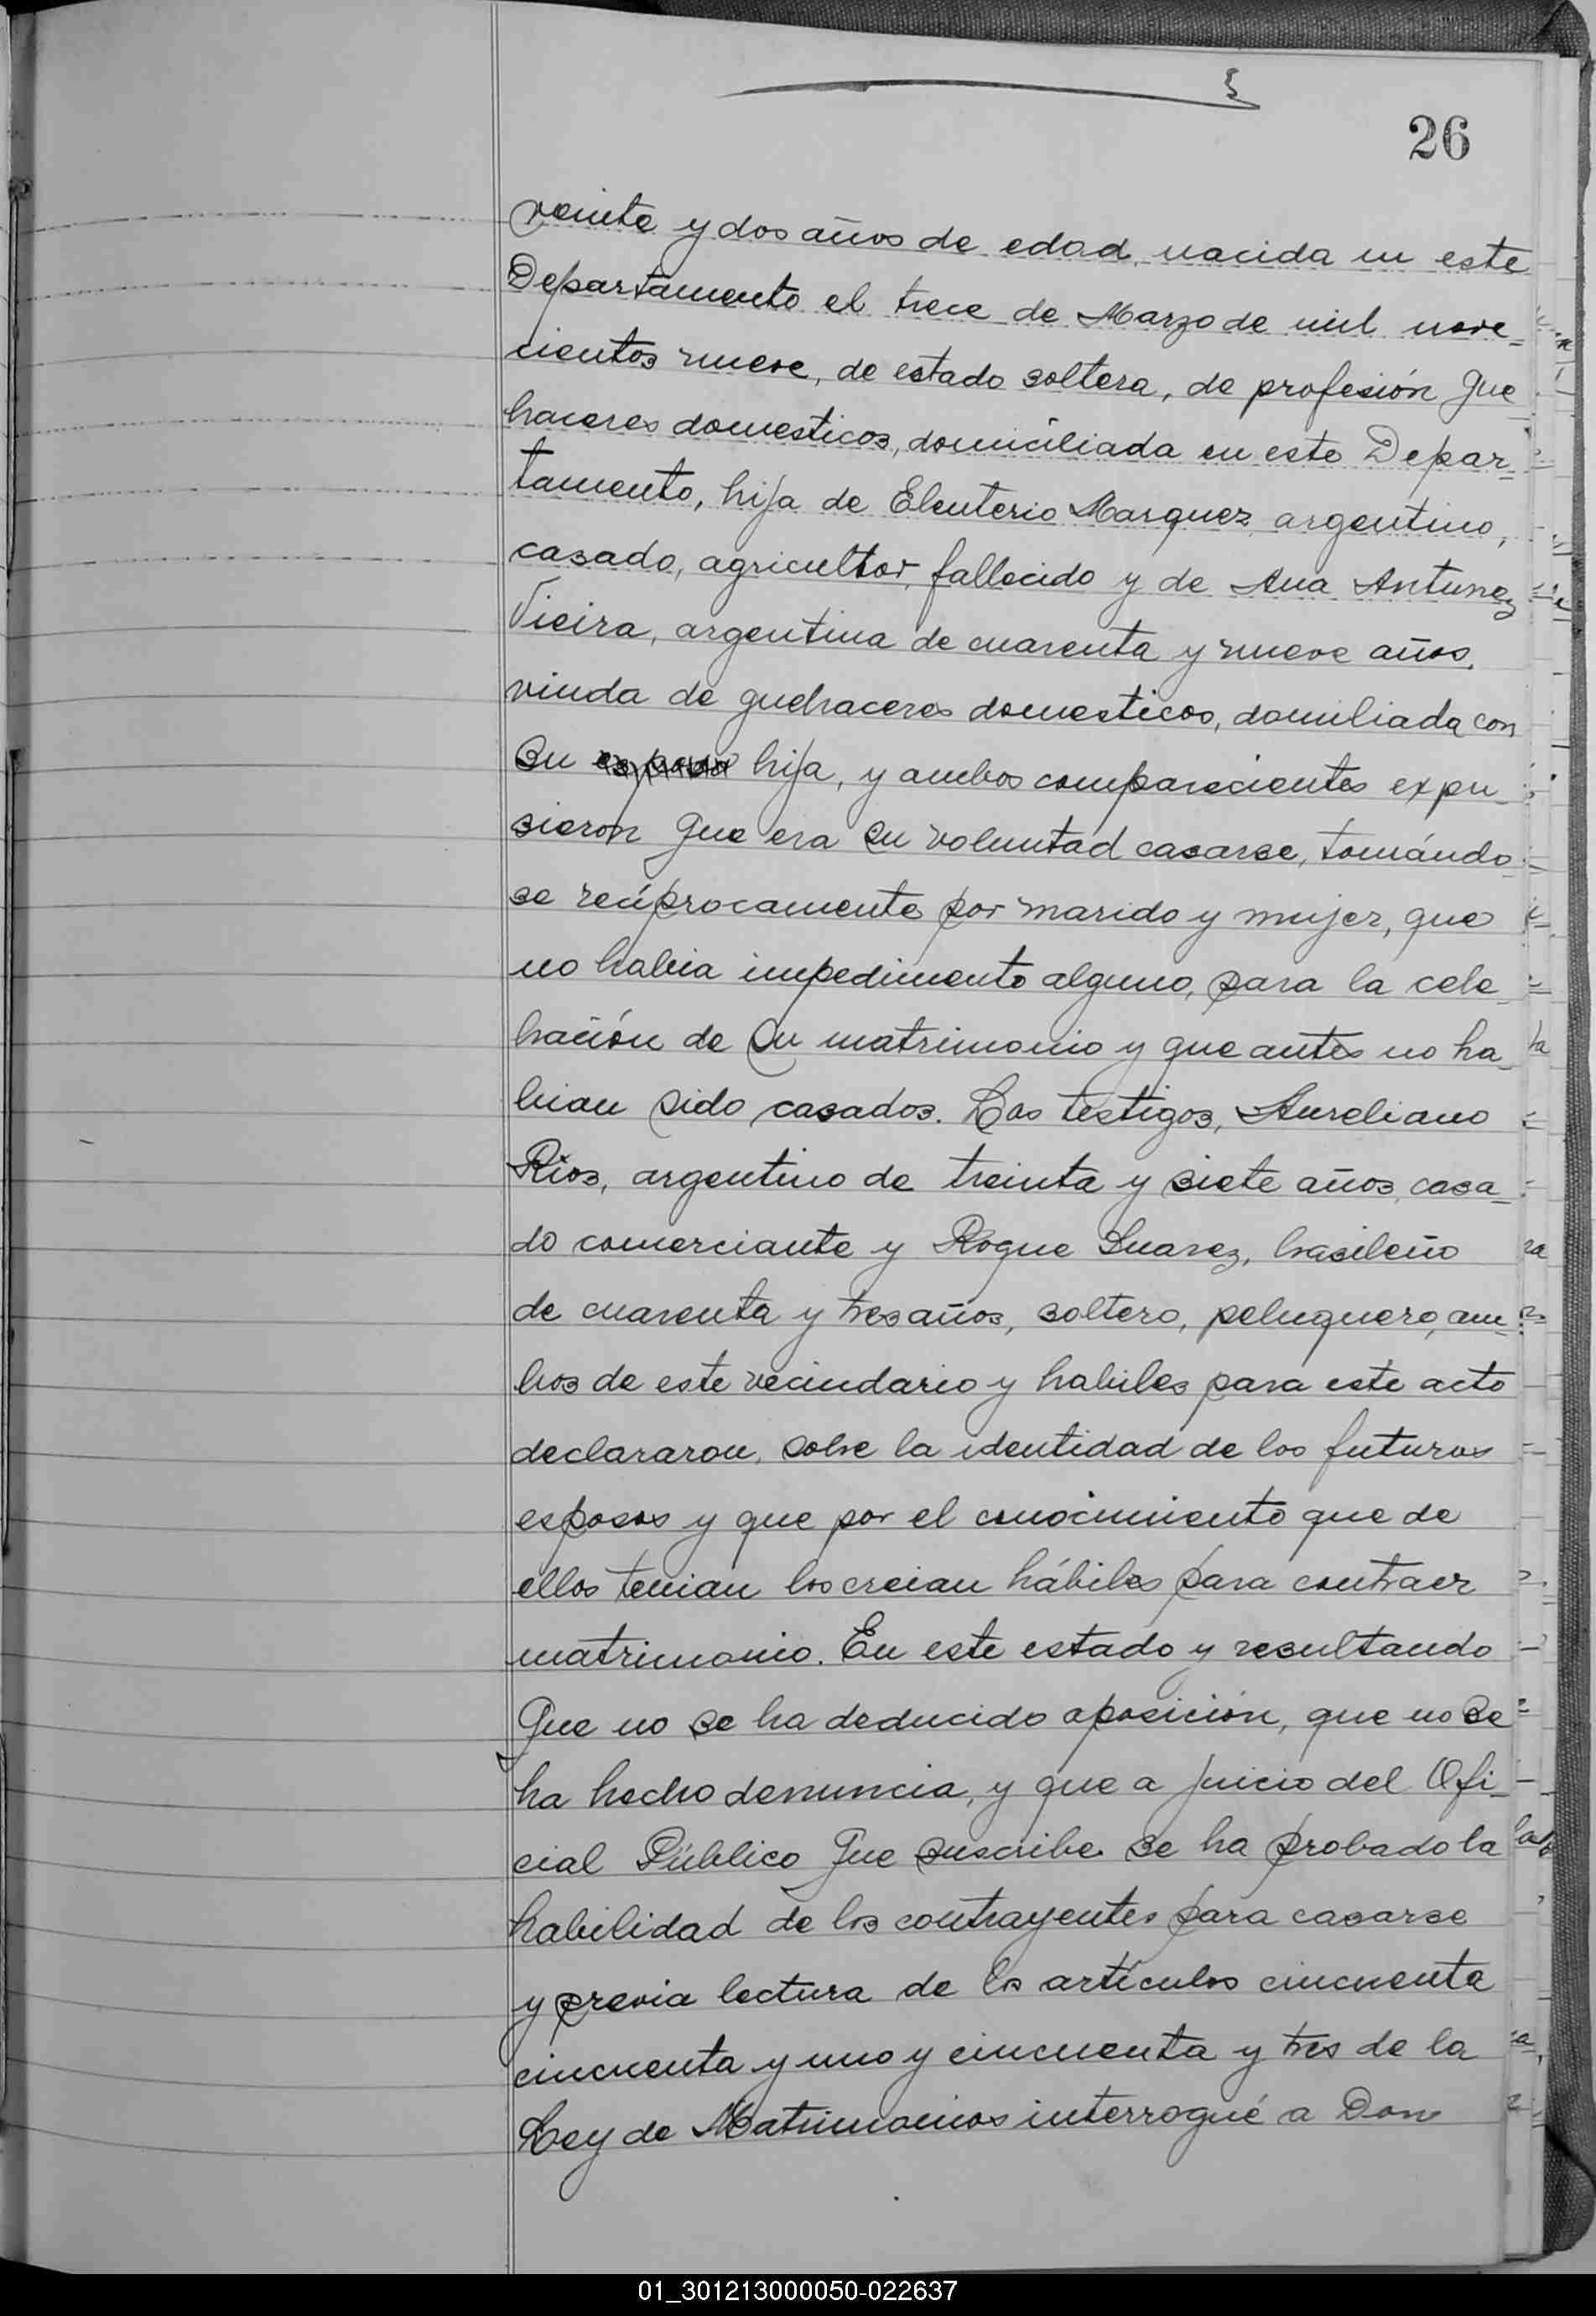 26
veinte y dos años de edad, nacida en este
Departamento el trece de Marzo de mil nove=
cientos nueve, de estado soltera, de profesión que
haceres domesticos, domiciliada en este Depar=
tamento, hija de Eleuterio Marquez argentino,
casado, agricultor, fallecido y de Ana Antunez
Vieira, argentina de cuarenta y nueve años,
viuda de quehaceres domesticos, domiliada con
su esposo hija, y ambos comparecientes expu_
sieron que era su voluntad casarse, tomándo_
se recíprocamente por marido y mujer, que
no habia impedimento alguno, para la cele_
bración de su matrimonio y que antes no ha_
bian sido casados. Los testigos, Aureliano
Rios, argentino de treinta y siete años, casa_
do comerciante y Roque Suarez, brasileño
de cuarenta y tres años, soltero, peluquero, am_
bos de este vecindario y habiles para este acto
declararon, sobre la identidad de los futuros
esposos y que por el conocimiento que de
ellos tenian los creian hábiles para contraer
matrimonio. En este estado y resultando
que no se ha deducido oposición, que no se
ha hecho denuncia, y que a juicio del Ofi_
cial Público que suscribe se ha probado la
habilidad de los contrayentes para casarse
y previa lectura de los artículos cincuenta
cincuenta y uno y cincuenta y tres de la
Ley de Matrimonios interrogué a Don
01_301213000050-022637